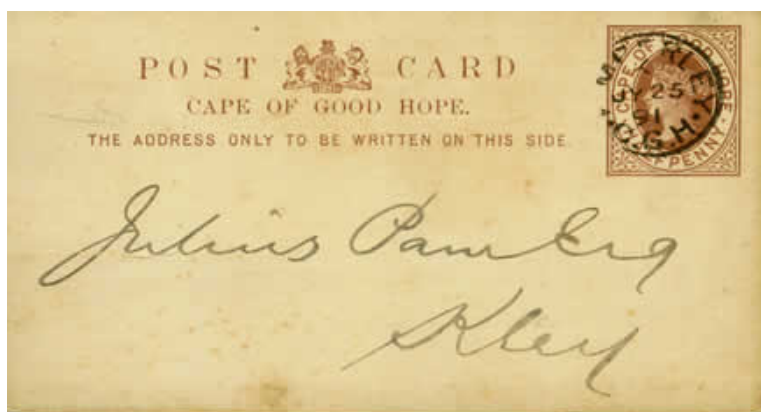 POST CARD
CAPE OF GOOD HOPE.
THE ADDRESS ONLY TO BE WRITTEN ON THIS SIDE.
CAPE OF GOOD HOPE
HALFPENNY
JY 25
91
C.G.H.
Julius Pam Esq
Kley